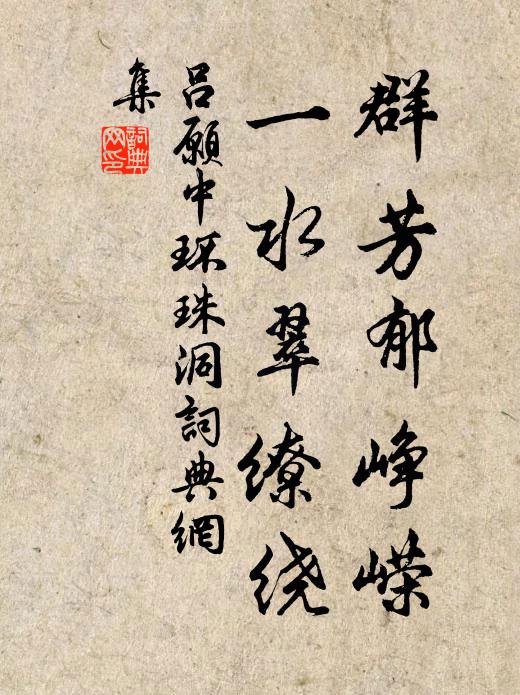 群芳郁峥嵘
一水翠缭绕
吕愿中环珠洞詞典網
集
詞典网印